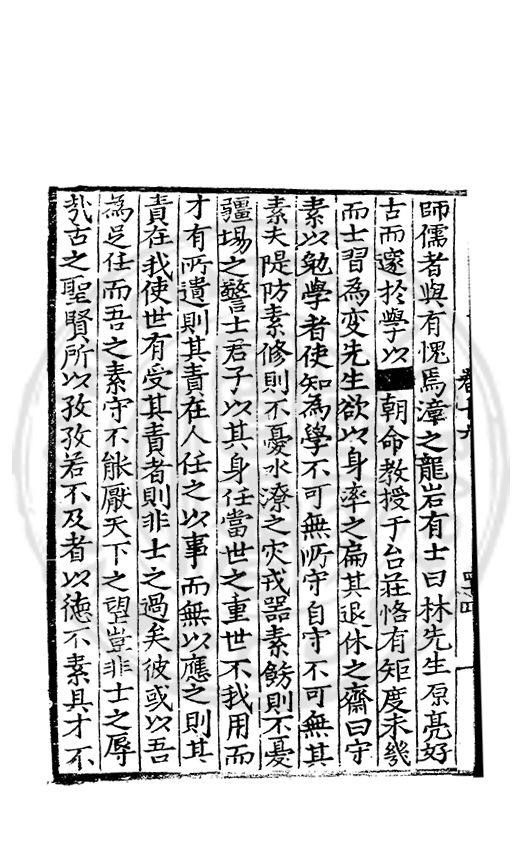 師儒者與有愧焉漳之龍岩有士曰林先生原亮好
古而邃於學以■朝命教授于台莊恪有矩度未幾
而士習為変先生欲以身率之扁其退休之齋曰守
素以勉學者使知為學不可無所守自守不可無其
素夫隄防素修則不憂水潦之灾戎器素飭則不憂
疆場之警士君子以其身任當世之重世不我用而
才有所遺則其責在人任之以事而無以應之則其
責在我使世有受其責者則非士之過矣彼或以吾
為足任而吾之素守不能厭天下之望豈非士之辱
㦲古之聖賢所以孜孜若不及者以徳不素具才不
卷十九
四十四